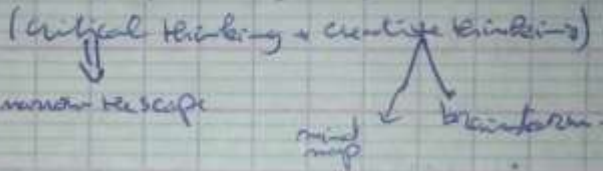 (critical thinking + creative thinking)
narrow the scope
mind brainstorm
map